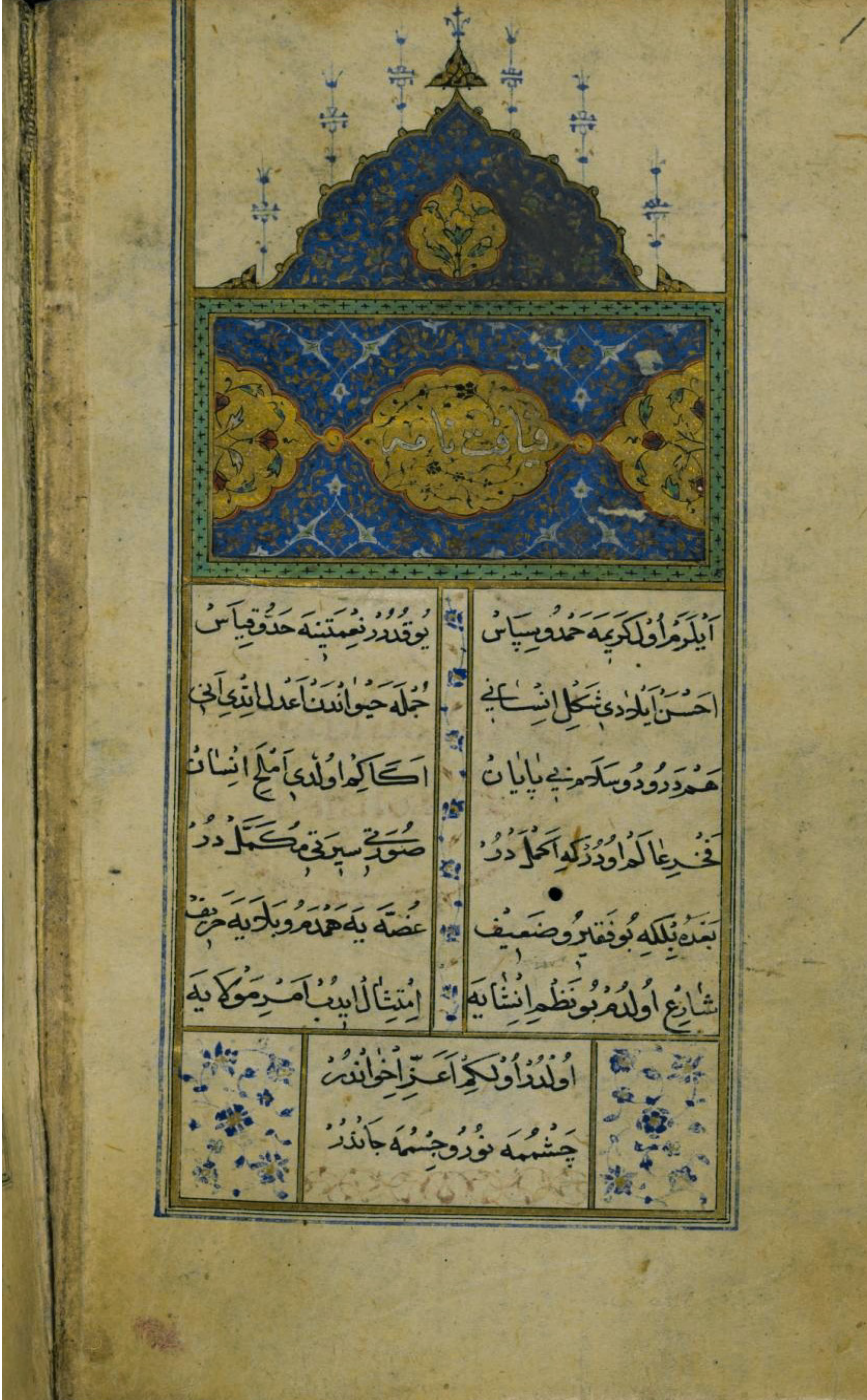 قیافت نامه
اَیلَرَم اُول کَرِیمَه حَمدُو سِپَاس یُوقدُرُر نِعمَتِینَه حَدُّو قِیاَس
اَحسَن اَیلَدی شَکلِ اِنسانی جُملَه حَیواندَن اَعدَل اِتدِی اَنی
هَم دَرودُو سَلامِ بی پایان اَکا کِم اولدی اَملَحِ اِنسان
فَخرِ عالَم اودُر کِه اَکمَل دُرُر صُورَتی سِیرَتی مُکَمَّل دُرُر
بَعدَه بِلکِه بو فَقیرُو ضَعیف غُصَّه یَه هَمدَمُ و بَلایَه حَریف
شارِع اُولدُم بو نَظمِ اِنشایَه اِمتِثال ایدُب اَمرِ مَولایَه
اُولدُر اُولکِم اَعَزِّ اِخواندُر
چَشمُمَه نورُو جِسمُمَه جاندُر